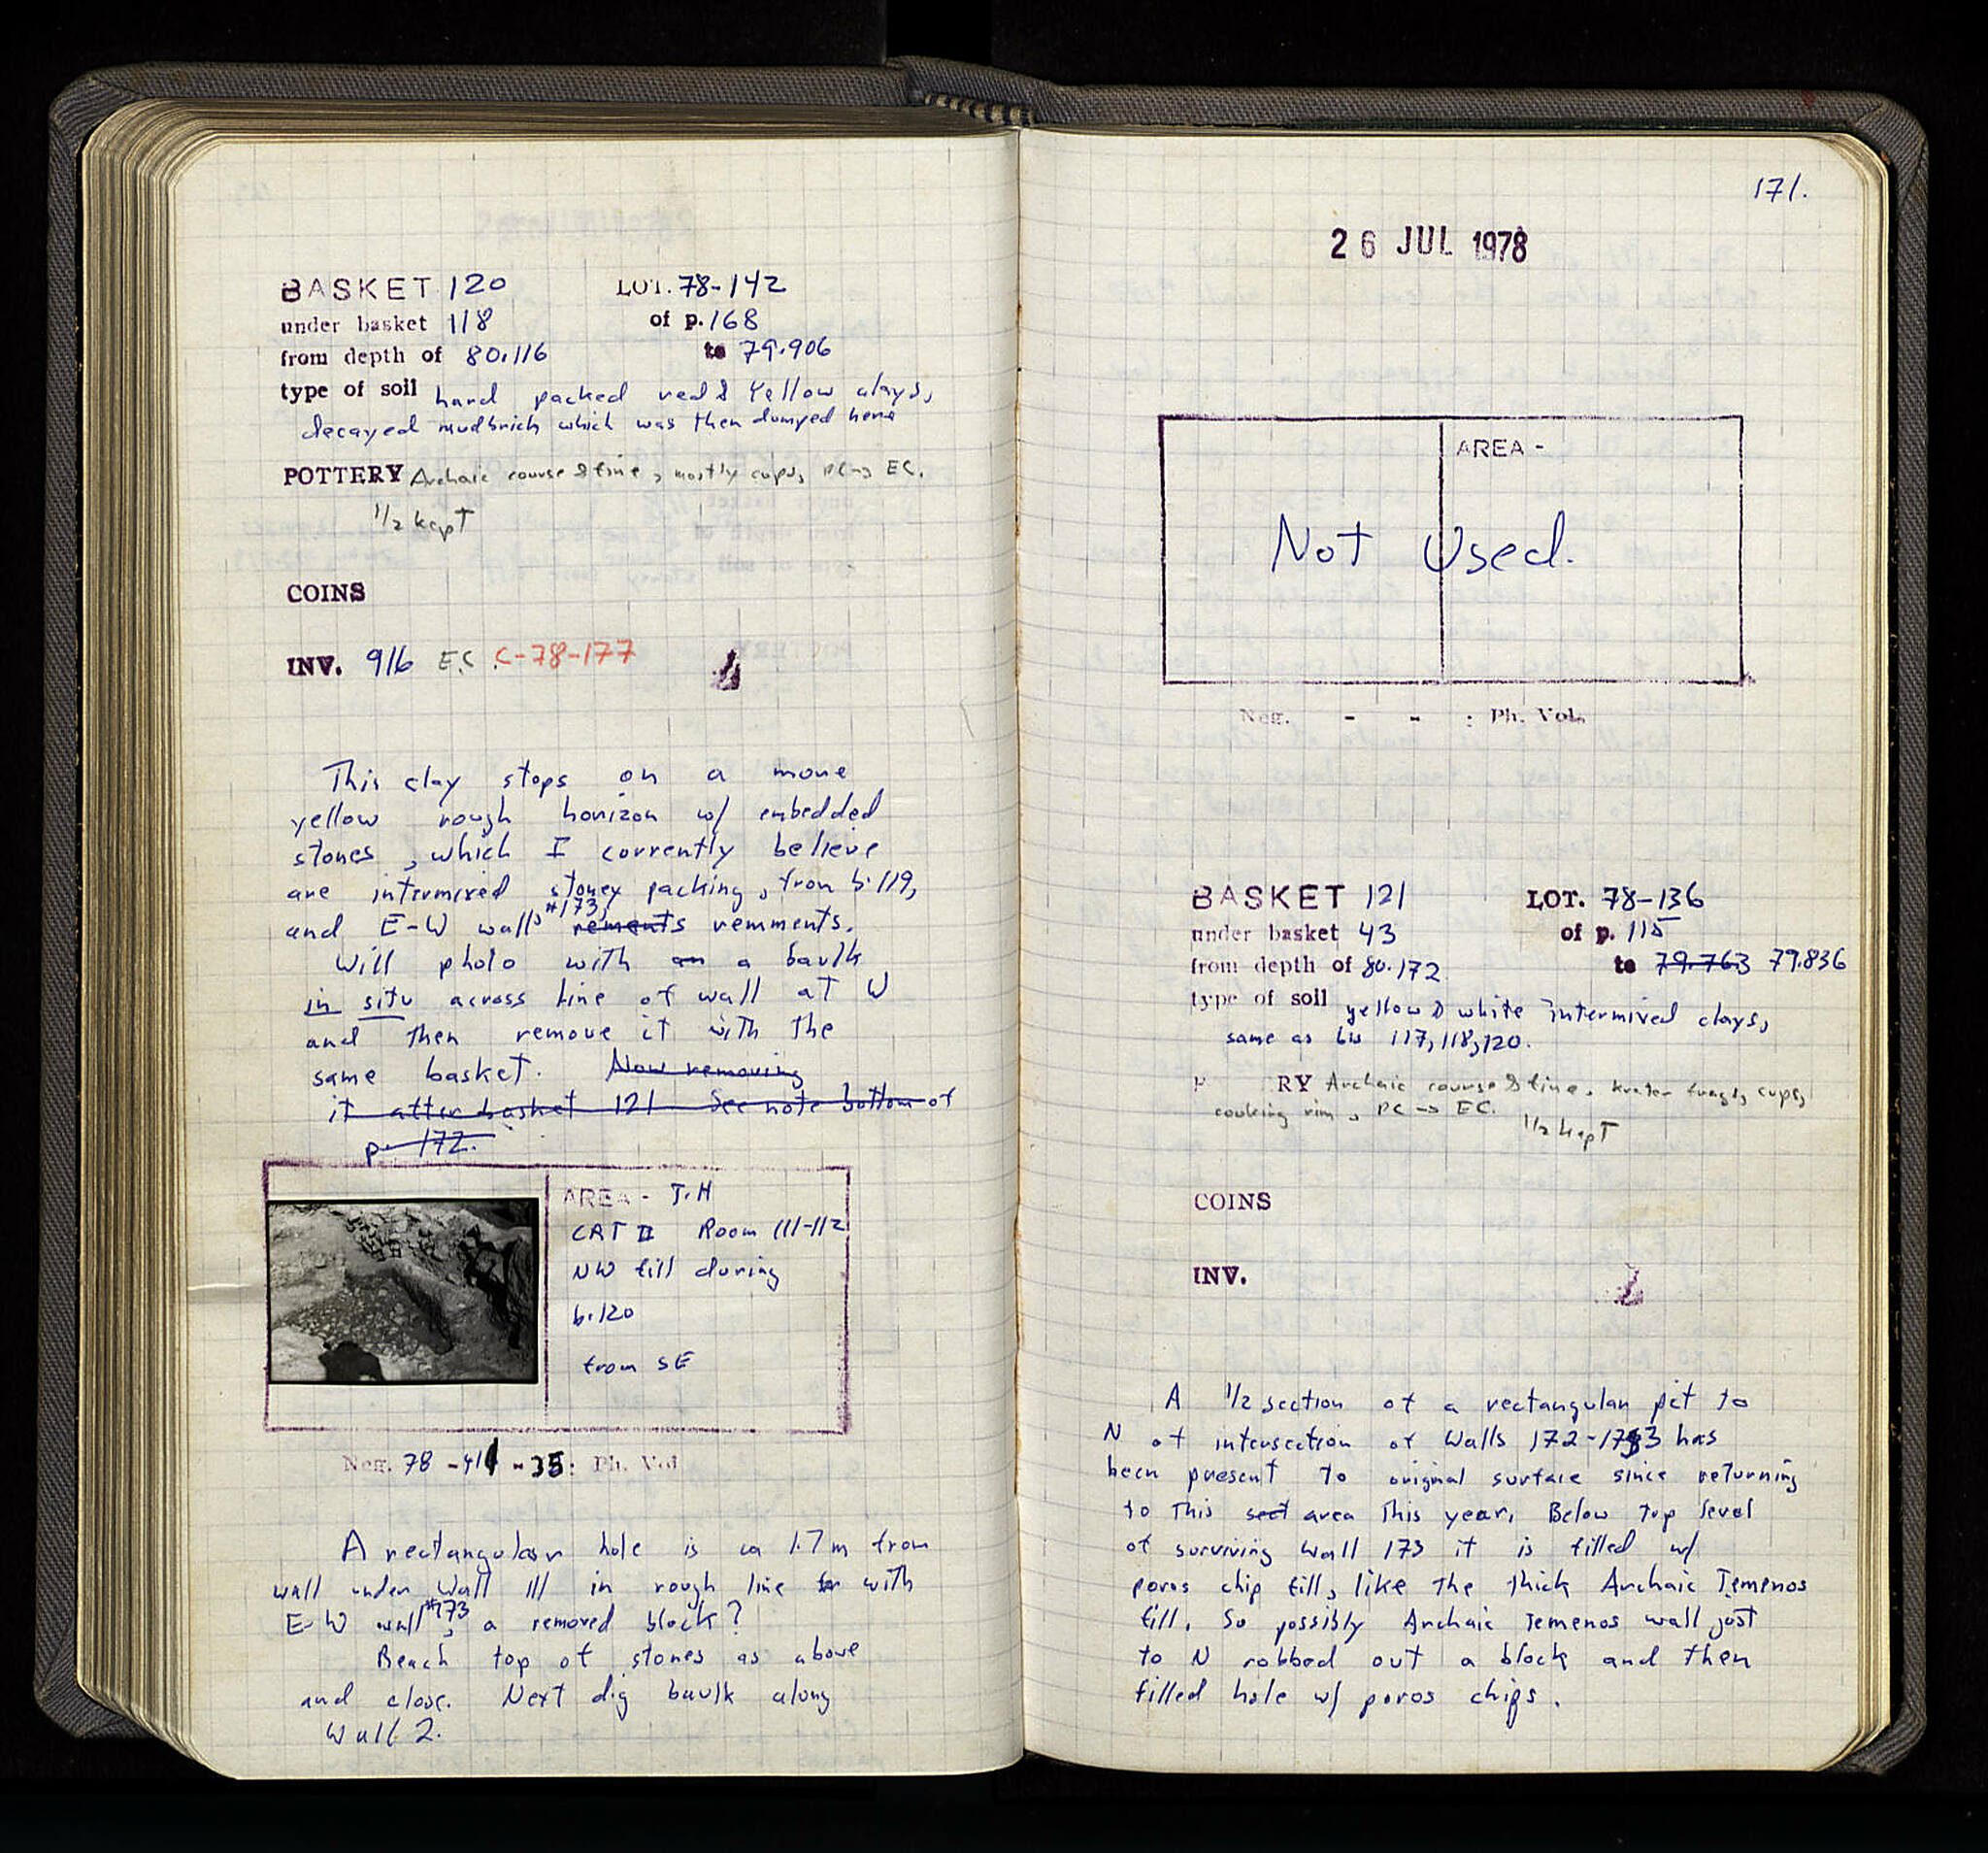 BASKET 120 LOT. 78-142
under basket 118 of p. 168
from depth of 80.116 to 79.906
type of soil hard packed red & Yellow clays,
decayed mudbrick which was then dumped here
POTTERY Archaic course & fine, mostly cups, PC → EC.
1/2 kept
COINS
INV. 916 E.C. C-78-177
This clay stops on a more
yellow rough horizon w/ embedded
stones, which I currently believe
are intermixed stoney packing, from b. 119,
and E-W wall, #173, rements remments.
Will photo with an a baulk
in situ across line of wall at W
and then remove it with the
same basket. Now removing
it after basket 121 See note bottom of
p. 172.
AREA - T.H
CRT II Room 111-112
NW fill during
b. 120
from SE
Neg. 78 -41 -35: Ph. Vol
A rectangular hole is ca 1.7 m from
wall under Wall 111 in rough line with
E-W wall #173, a removed block?
Beach top of stones as above
and close. Next dig baulk along
Wall 2.
171.
26 JUL 1978
AREA -
Not Used.
Neg. - - : Ph. Vol.
BASKET 121 LOT. 78-136
under basket 43 of p. 115
from depth of 80.172 to 79.763 79.836
type of soil yellow & white intermixed clays,
same as bis 117, 118, 120.
P RY Archaic course & fine, krater frags, cups,
cooking rim, PC → EC. 1/2 kept
COINS
INV.
A 1/2 section of a rectangular pit to
N of intersection of Walls 172-173 has
been present to original surface since returning
to this sect area this year. Below top level
of surviving Wall 173 it is filled w/
poros chip fill, like the thick Archaic Temenos
fill. So possibly Archaic Temenos wall just
to N robbed out a block and then
filled hole w/ poros chips.